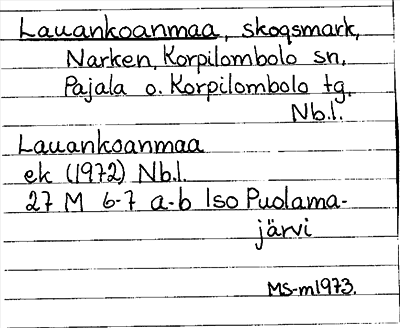 Lauankoanmaa, skogsmark,
Narken, Korpilombolo sn,
Pajala o. Korpilombolo tg.
Nb.l.
Lauankoanmaa
ek (1972) Nb.l.
27 M 6-7 a-b Iso Puolama-
järvi
MS-m1973.